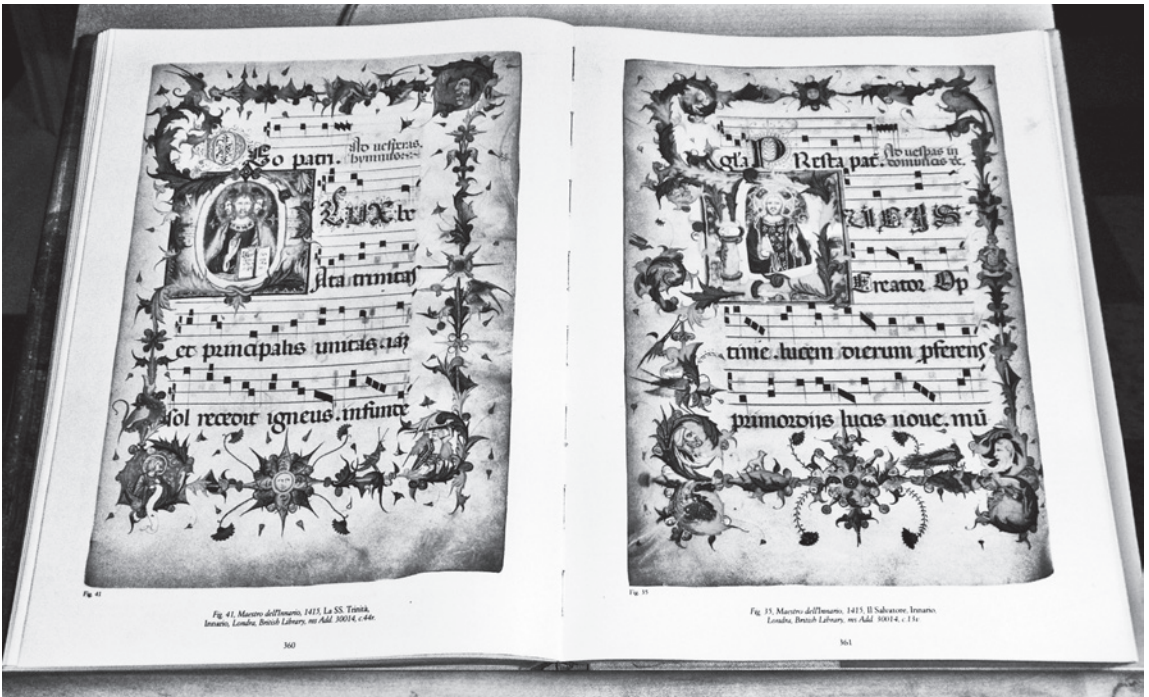 Eo patri. Ad uesperas.
hymnus
LUX be
Ata trinitas
et principalis unitas. iaz
sol recedit igneus. infunde
Fig. 41
Fig. 41, Maestro dell'Innario, 1415, La SS. Trinità,
Innario, Londra, British Library, ms Add. 30014, c.44r.
360
gl'a P Resta pat. Ad uespas in
dominicis
LUCIS
Creator Op
time. lucem dierum pferens
primordijs lucis noue. mū
Fig. 35
Fig. 35, Maestro dell'Innario, 1415, Il Salvatore, Innario,
Londra, British Library, ms Add. 30014, c.13r.
361